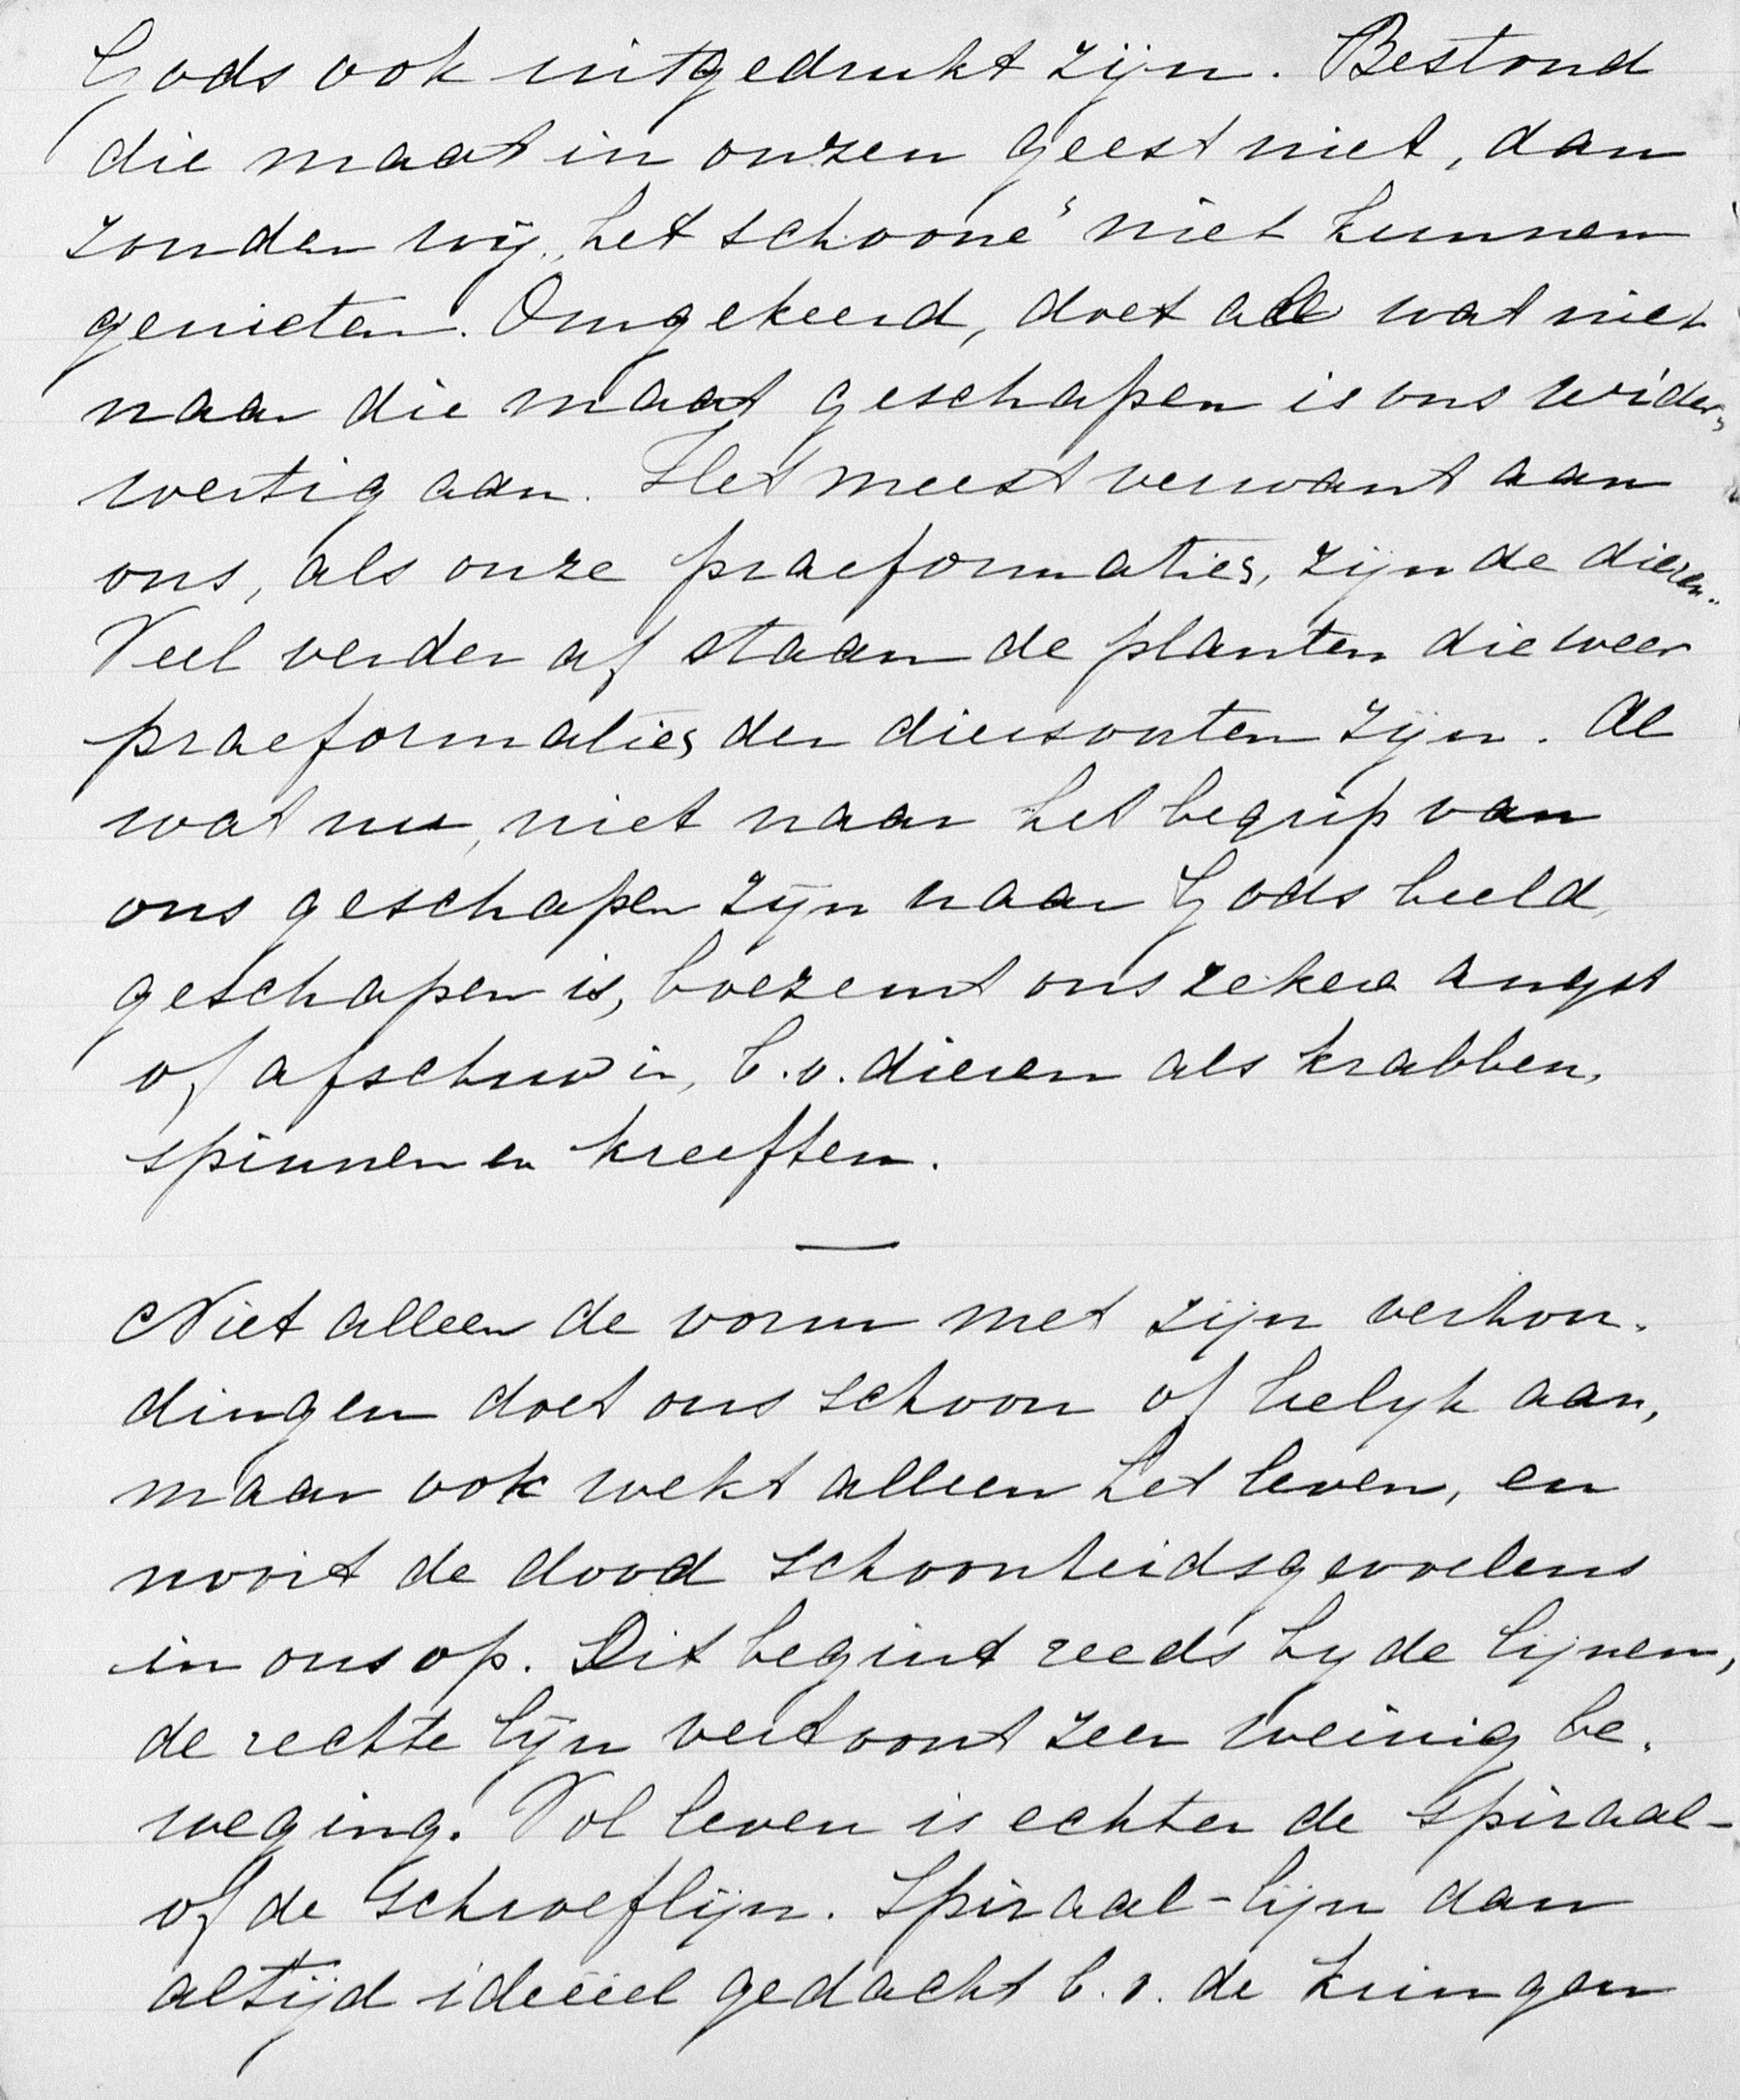 Gods ook uitgedrukt zijn. Bestond
die maat in onzen geest niet, dan
zouden wij „het schoone" niet kunnen
genieten. Omgekeerd, doet all wat niet
naar die maat geschapen is ons wider-
wertig aan. Het meest verwant aan
ons, als onze praeformaties, zijn de dieren.
Veel verder af staan de planten die weer
praeformaties der diersoorten zijn. Al
wat nu, niet naar het begrip van
ons geschapen zijn naar Gods beeld,
geschapen is, boezemt ons zekere angst
of afschuw in, b.v. dieren als krabben,
spinnen en kreeften.
—
Niet alleen de vorm met zijn verhou-
dingen doet ons schoon of lelyk aan,
maar ook wekt alleen het leven, en
nooit de dood schoonheidsgevoelens
in ons op. Dit begint reeds by de lijnen,
de rechte lijn vertoont zeer weinig be-
weging. Vol leven is echter de spiraal-
of de schroeflijn. Spiraal-lijn dan
altijd ideëel gedacht b.v. de kringen